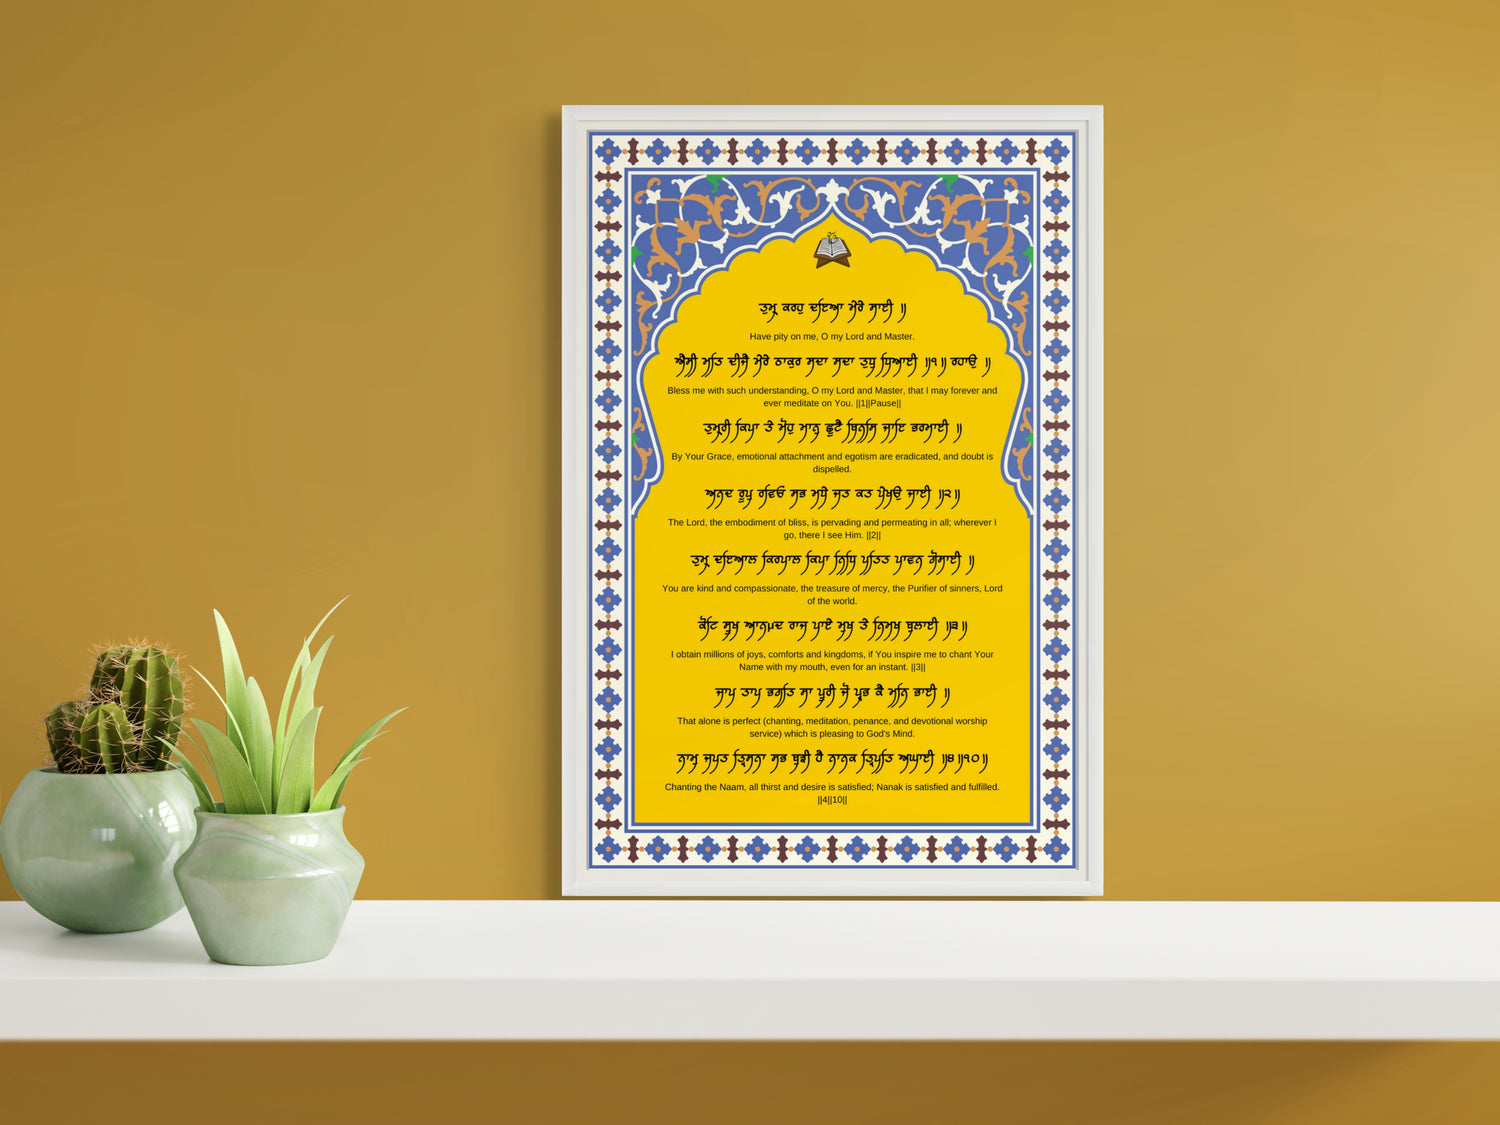 ਤੁਮ੍ਹ ਕਰਹੁ ਦਇਆ ਮੇਰੇ ਸਾਈ ॥
Have pity on me, O my Lord and Master.
ਐਸੀ ਮਤਿ ਦੀਜੈ ਮੇਰੇ ਠਾਕੁਰ ਸਦਾ ਸਦਾ ਤੁਧੁ ਧਿਆਈ ॥੧॥ ਰਹਾਉ ॥
Bless me with such understanding, O my Lord and Master, that I may forever and
ever meditate on You. ||1||Pause||
ਤੁਮ੍ਹਰੀ ਕ੍ਰਿਪਾ ਤੇ ਮੋਹੁ ਮਾਨੁ ਛੂਟੈ ਬਿਨਸਿ ਜਾਇ ਭਰਮਾਈ ॥
By Your Grace, emotional attachment and egotism are eradicated, and doubt is
dispelled.
ਅਨਦ ਰੂਪੁ ਰਵਿਓ ਸਭ ਮਧੇ ਜਤ ਕਤ ਪੇਖਉ ਜਾਈ ॥੨॥
The Lord, the embodiment of bliss, is pervading and permeating in all; wherever I
go, there I see Him. ||2||
ਤੁਮ੍ਹ ਦਇਆਲ ਕਿਰਪਾਲ ਕ੍ਰਿਪਾ ਨਿਧਿ ਪਤਿਤ ਪਾਵਨ ਗੋਸਾਈ ॥
You are kind and compassionate, the treasure of mercy, the Purifier of sinners, Lord
of the world.
ਕੋਟਿ ਸੂਖ ਆਨµਦ ਰਾਜ ਪਾਏ ਮੁਖ ਤੇ ਨਿਮਖ ਬੁਲਾਈ ॥੩॥
I obtain millions of joys, comforts and kingdoms, if You inspire me to chant Your
Name with my mouth, even for an instant. ||3||
ਜਾਪ ਤਾਪ ਭਗਤਿ ਸਾ ਪੂਰੀ ਜੋ ਪ੍ਰਭ ਕੈ ਮਨਿ ਭਾਈ ॥
That alone is perfect (chanting, meditation, penance, and devotional worship
service) which is pleasing to God's Mind.
ਨਾਮੁ ਜਪਤ ਤ੍ਰਿਸਨਾ ਸਭ ਬੁਝੀ ਹੈ ਨਾਨਕ ਤ੍ਰਿਪਤਿ ਅਘਾਈ ॥੪॥੧੦॥
Chanting the Naam, all thirst and desire is satisfied; Nanak is satisfied and fulfilled.
||4||10||